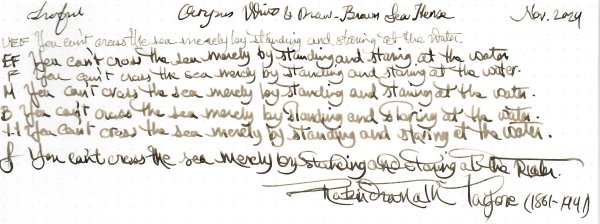 Octopus Write & Draw - Brown Sea Horse Nov. 2024
UEF You can't cross the sea merely by standing and staring at the water.
EF You can't cross the sea merely by standing and staring at the water.
F You can't cross the sea merely by standing and staring at the water.
M You can't cross the sea merely by standing and staring at the water.
B You can't cross the sea merely by standing and staring at the water.
1.1 You can't cross the sea merely by standing and staring at the water.
f You can't cross the sea merely by standing and staring at the Water.
Rabindranath Tagore (1861-1941)